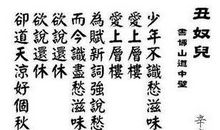 丑奴兒
書博山道中壁
辛
少年不識愁滋味
愛上層樓
愛上層樓
為賦新詞強說愁
而今識盡愁滋味
欲說還休
欲說還休
卻道天涼好個秋